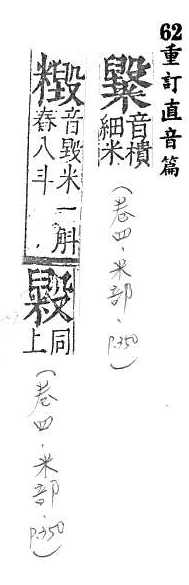 62重訂直音篇
音
細米
(卷四·米部·P.350)
音毀米一斛
舂八斗
同
上
(卷四·米部·P.350)